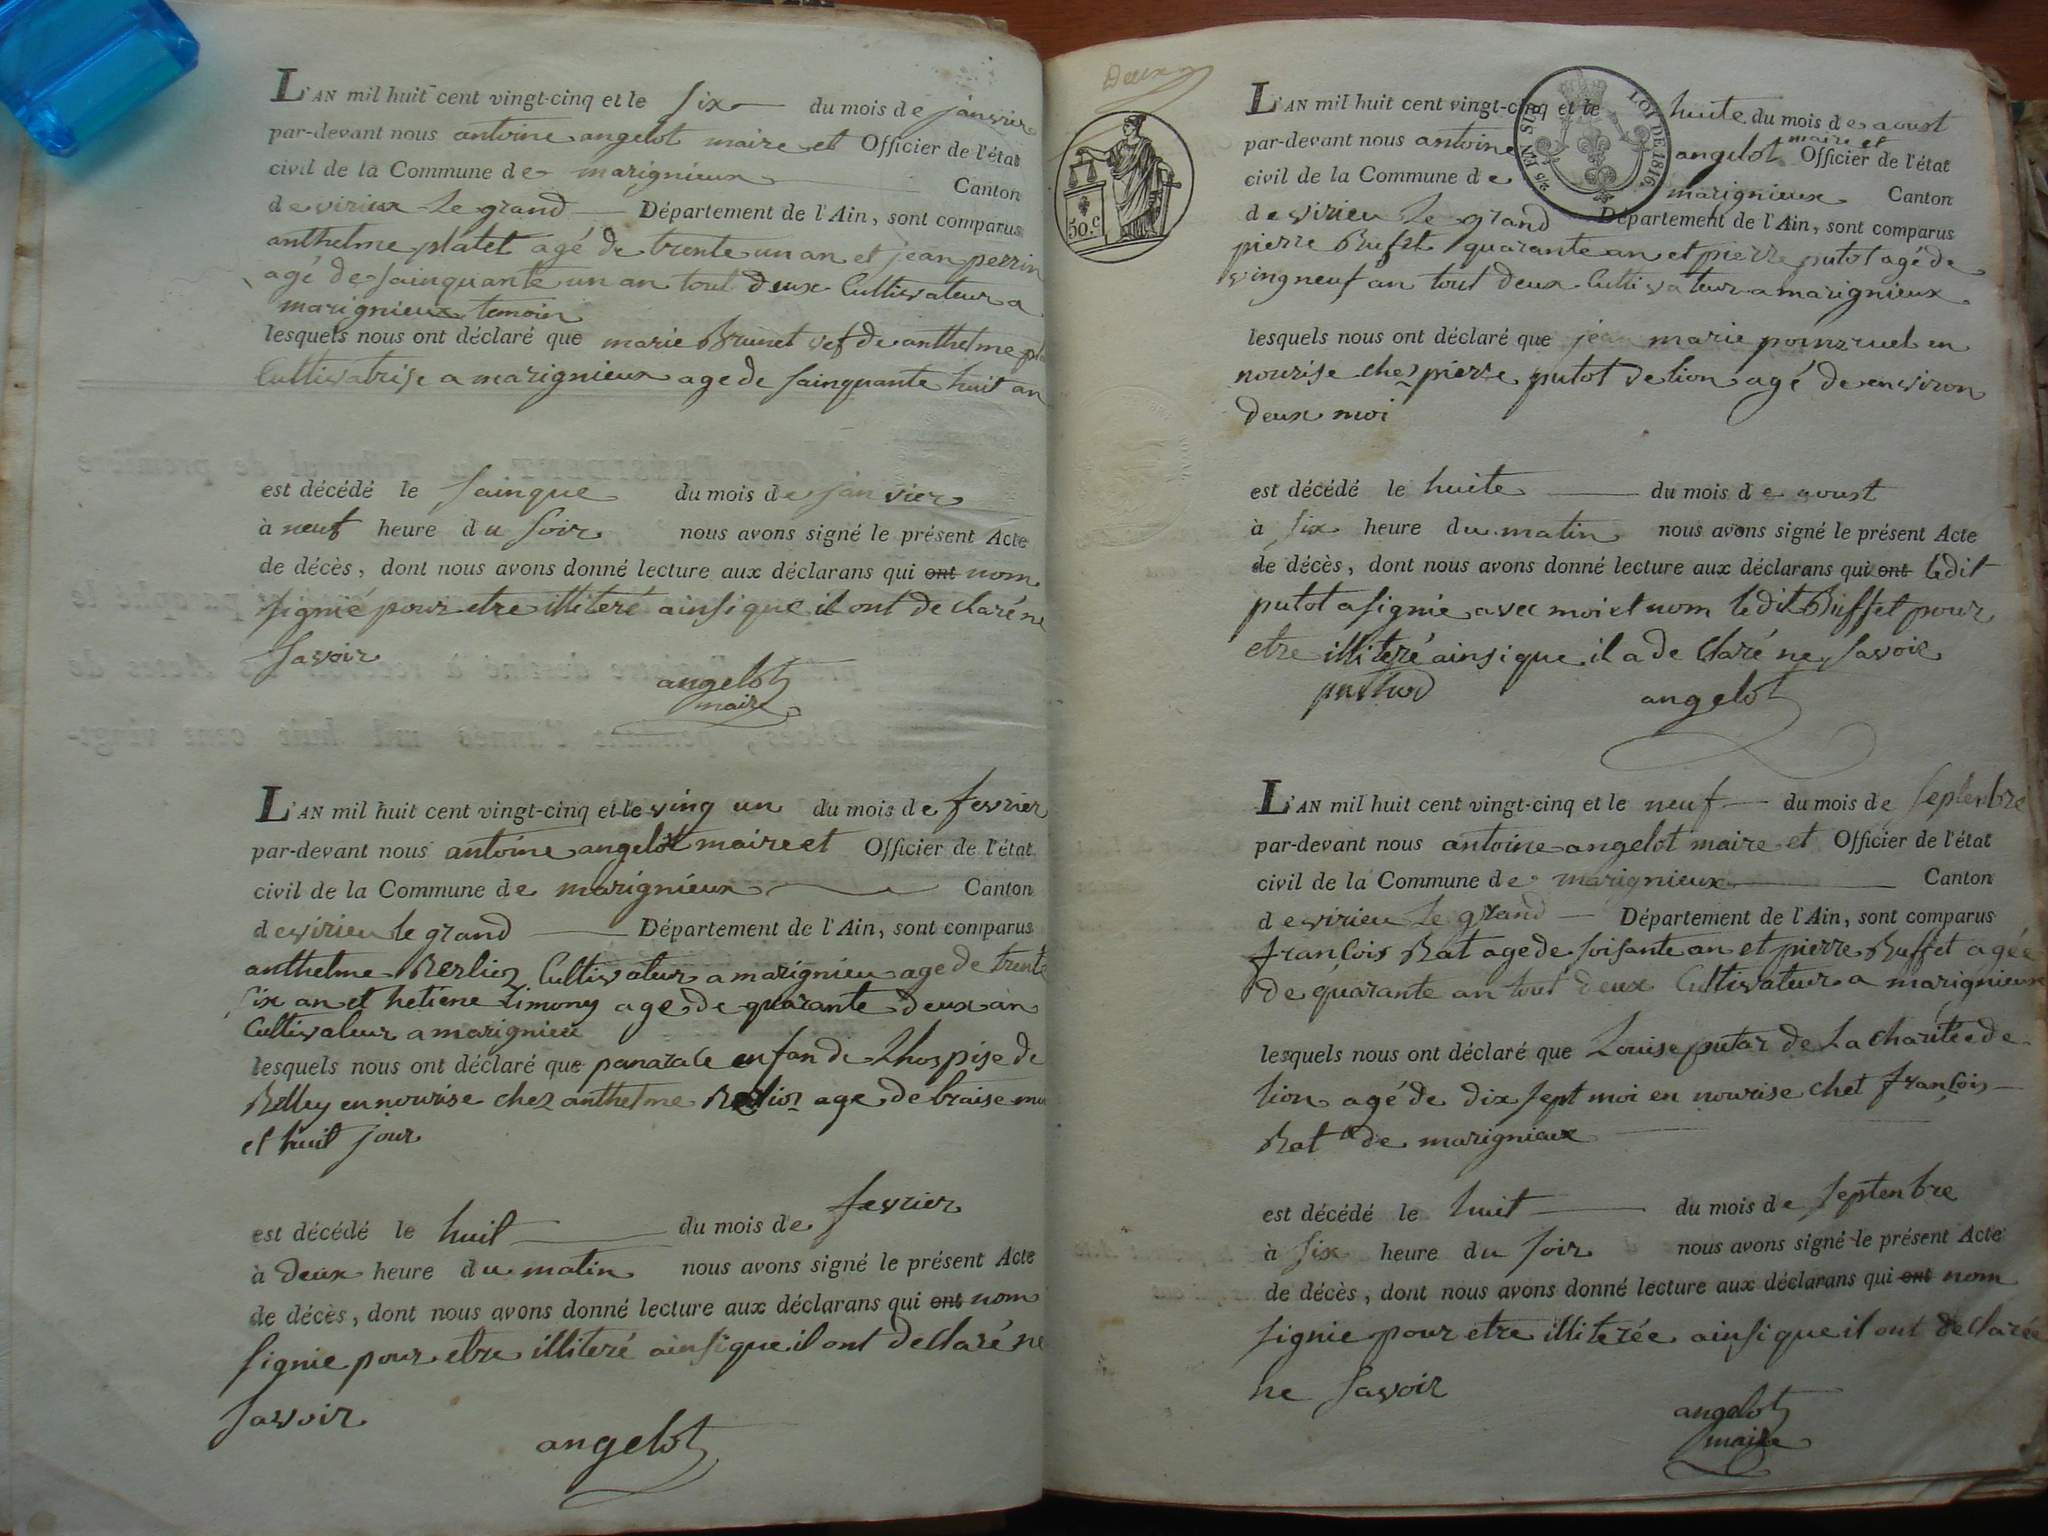 L'AN mil huit cent vingt-cinq et le six du mois de janvier
par-devant nous antoine angelot maire et Officier de l'état
civil de la Commune de marignieux Canton
de virieux le grand Département de l'Ain, sont comparus
anthelme platet agé de trente un an et jean perrin
agé de sainquante un an tout deux Cultivateur a
marignieux temoin
lesquels nous ont déclaré que marie Brunet vef de anthelme
Cultivatrise a marignieux age de sainquante huit an
est décédé le sainque du mois de janvier
à neuf heure du soir nous avons signé le présent Acte
de décès, dont nous avons donné lecture aux déclarans qui ont nom
signié pour etre illiteré ainsi que il ont de claré ne
savoir
angelot
maire
L'AN mil huit cent vingt-cinq et le ving un du mois de fevrier
par-devant nous antoine angelot maire et Officier de l'état
civil de la Commune de marignieux Canton
de virieu le grand Département de l'Ain, sont comparus
anthelme Berlioz Cultivateur a marignieu age de trente
six an et hetiene Limony age de quarante deux an
Cultivateur a marignieu
lesquels nous ont déclaré que enfan de Lhospise de
Belley en nourise chez anthelme Berlioz age de
et huit jour
est décédé le huit du mois de fevrier
à deux heure du matin nous avons signé le présent Acte
de décès, dont nous avons donné lecture aux déclarans qui ont nom
signie pour etre illiteré ainsi que il ont declaré ne
savoir
angelot
Deux
50.C
LOI DE 1816.
L'AN mil huit cent vingt-cinq et le huite du mois de aoust
par-devant nous antoine angelot maire et Officier de l'état
civil de la Commune de marignieux Canton
de virieu le grand Département de l'Ain, sont comparus
pierre Bufet quarante an et pierre putot agé de
ving neuf an tout deux Cultivateur a marignieux
lesquels nous ont déclaré que jean marie en
nourise chez pierre putot de lion agé de environ
deux moi
est décédé le huite du mois de aoust
à six heure du matin nous avons signé le présent Acte
de décès, dont nous avons donné lecture aux déclarans qui ont ledit
putot a signie avec moi et nom ledit Buffet pour
etre illiteré ainsi que il a de claré ne savoir
angelot
L'AN mil huit cent vingt-cinq et le neuf du mois de septenbre
par-devant nous antoine angelot maire et Officier de l'état
civil de la Commune de marignieux Canton
de virieu le grand Département de l'Ain, sont comparus
françois Rat age de soisante an et pierre Buffet agée
de quarante an tout deux Cultivateur a marignieux
lesquels nous ont déclaré que Louise putar de La charitée de
lion agé de dix sept moi en nourise chet françois
Rat de marignieux
est décédé le huit du mois de septenbre
à six heure du soir nous avons signé le présent Acte
de décès, dont nous avons donné lecture aux déclarans qui ont nom
signie pour etre illiterée ainsi que il ont declarée
ne savoir
angelot
maire